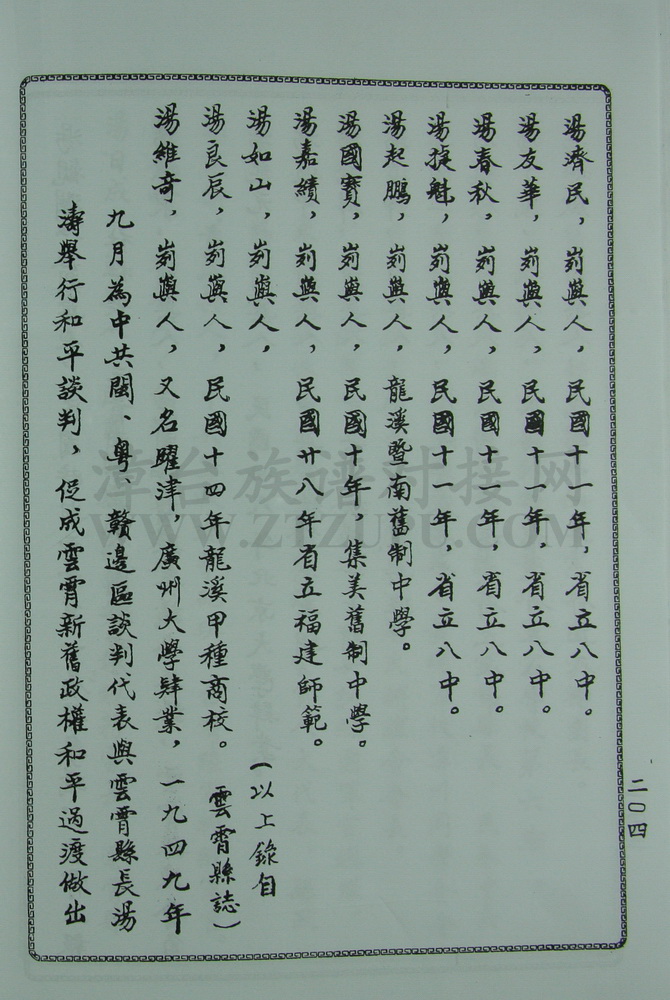 湯濟民，峛嶼人，民國十一年，省立八中。
湯友華，峛嶼人，民國十一年，省立八中。
湯春秋，峛嶼人，民國十一年，省立八中。
湯捷魁，峛嶼人，民國十一年，省立八中。
湯起鵬，峛嶼人，龍溪暨南舊制中學。
湯國寶，峛嶼人，民國十年，集美舊制中學。
湯嘉績，峛嶼人，民國廿八年省立福建師範。
湯如山，峛嶼人，
（以上錄自
湯良辰，峛嶼人，民國十四年龍溪甲種商校。
雲霄縣誌）
湯維奇，峛嶼人，又名躍津，廣州大學肄業，一九四九年
九月為中共閩、粵、贛邊區談判代表與雲霄縣長湯
濤舉行和平談判，促成雲霄新舊政權和平過渡做出
二〇四
漳台族谱对接网
WWW.ZTZUPU.COM